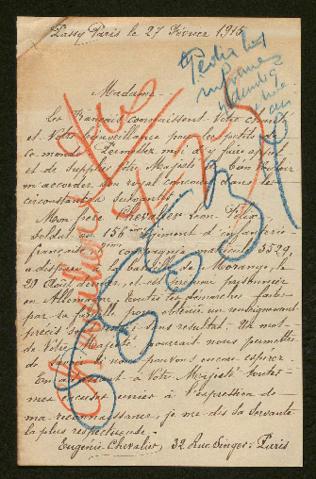 Passy Paris le 27 Février 1915
Pedia los
informes
Madame.
Les Français connaissent Votre bonté
et Votre bienveillance pour les petits de
ce monde. Permettez moi d'y faire appel
et de supplier Votre Majesté de bien vouloir
m'accorder son royal concours dans les
circonstances suivantes
Mon frère Chevalier Léon Félix,
soldat au 156ème régiment d'infanterie
française compagnie matricule 3529,
a disparu à la bataille de Morange, le
20 Août dernier, et est présumé prisonnier
en Allemagne. Toutes les démarches faites
par la famille pour obtenir un renseignement
précis sont restées sans résultat. Un mot
de Votre Majesté pourrait nous permettre
de savoir si nous pouvons encore espérer
En adressant à Votre Majesté toutes
mes excuses unies à l'expression de
ma reconnaissance, je me dis la servante
la plus respectueuse.
Eugénie Chevalier, 32 Rue Singer. Paris